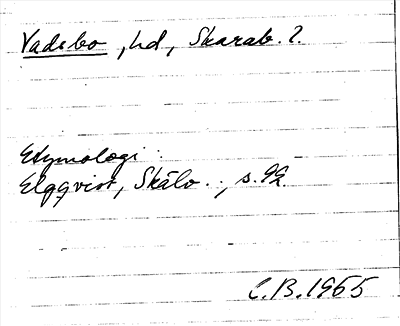 Vadsbo, hd, Skarab. l.
Etymologi:
Elgqvist, Skälv.., s. 99.
C.B. 1965